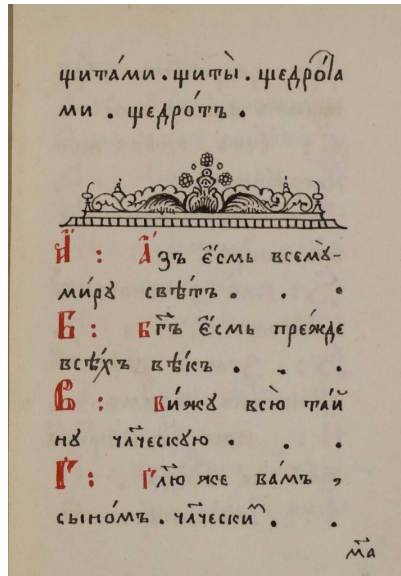 щита́ми . щиты̀ . щедро́та
ми . ще́дротъ .
А҃ : А҆́зъ є҆́смь всемꙋ̀-
ми́рꙋ свѣ́тъ . . .
Б : бг҃ъ є҆́смь пре́жде
всѣ́хъ вѣ́къ . . .
В : ви́жꙋ всю̀ та́й
нꙋ чл҃ческꙋю . . .
Г : Гл҃ю же ва́мъ ,
сыно́мъ . чл҃чески^м . .
мл҃а